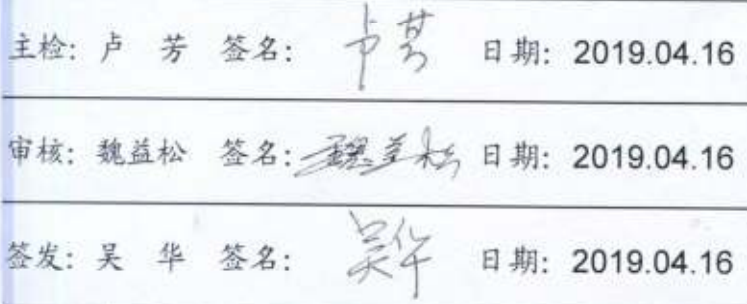 主检: 卢 芳 签名: 卢芳 日期: 2019.04.16
审核: 魏益松 签名: 魏益松 日期: 2019.04.16
签发: 吴 华 签名: 吴华 日期: 2019.04.16